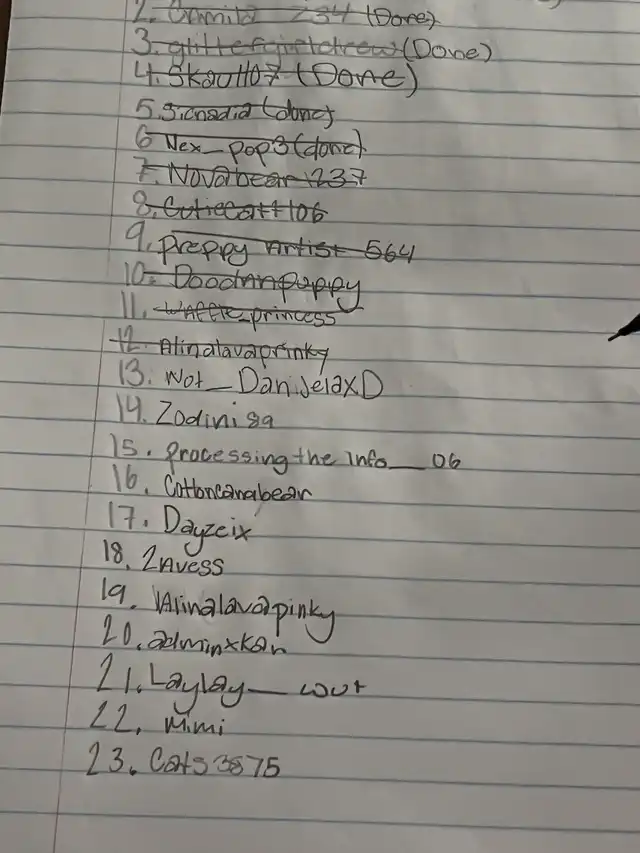 2. 234 (Done)
3. (Done)
4. Skau1107 (Done)
5. (done)
6 Nex_pop3 (done)
7. Novabear1237
8. Cutiecatt106
9. Preppy Artist 564
10. Doodninpuppy
11. Waffle_princess
12. Alinalavaprinky
13. Not_DanijelaxD
14. Zodinisa
15. Processing the info__06
16. Cottoncanabear
17. Dayzeix
18. 2Avess
19. Alinalavapinky
20. adminxkan
21. Laylay__
22. Mimi
23. Cats3875